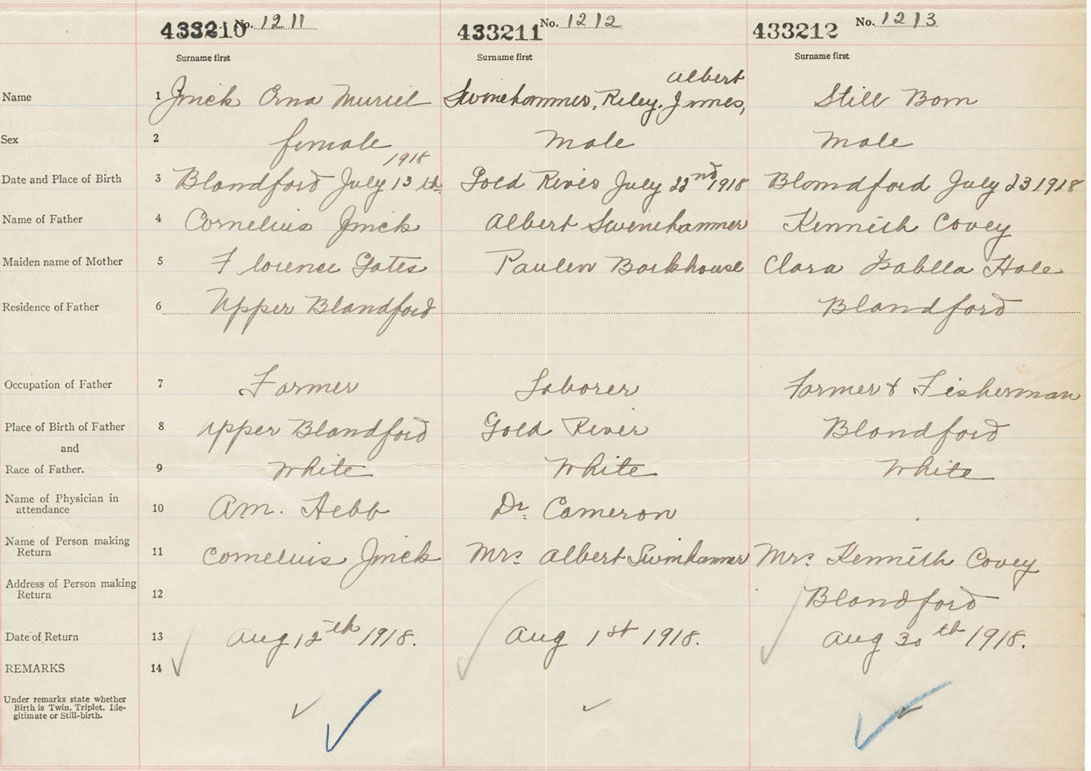 433210 No. 1211 433211 No. 1212 433212 No. 1213
Surname first Surname first Surname first
albert
Name 1 Jnick Ona Muriel Swinehammer, Riley, James, Still Born
Sex 2 female Male Male
1918
Date and Place of Birth 3 Blandford July 13th Gold River July 22nd 1918 Blandford July 23 1918
Name of Father 4 Cornelius Jnick Albert Swinehammer Kennith Covey
Maiden name of Mother 5 Florence Gates Barkhouse Clara Isablla Hale
Residence of Father 6 Upper Blandford Blandford
Occupation of Father 7 Farmer Laborer Farmer & Fisherman
Place of Birth of Father 8 Upper Blandford Gold River Blandford
and
Race of Father. 9 White White White
Name of Physician in
attendance 10 Am. Hebb Dr. Cameron
Name of Person making
Return 11 Cornelius Jnick Mrs Albert Swinhammer Mrs Kennith Covey
Address of Person making
Return 12 Blandford
Date of Return 13 Aug 12th 1918. Aug 1st 1918. Aug 30th 1918.
REMARKS 14
Under remarks state whether
Birth is Twin, Triplet, Ille-
gitimate or Still-birth.